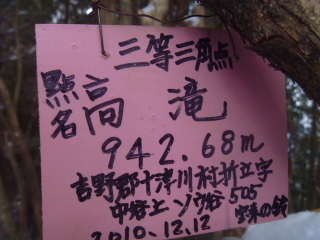 三等三角点
點名 高滝
942.68m
吉野郡十津川村折立字
中谷上ソウ谷 505
2010.12.12